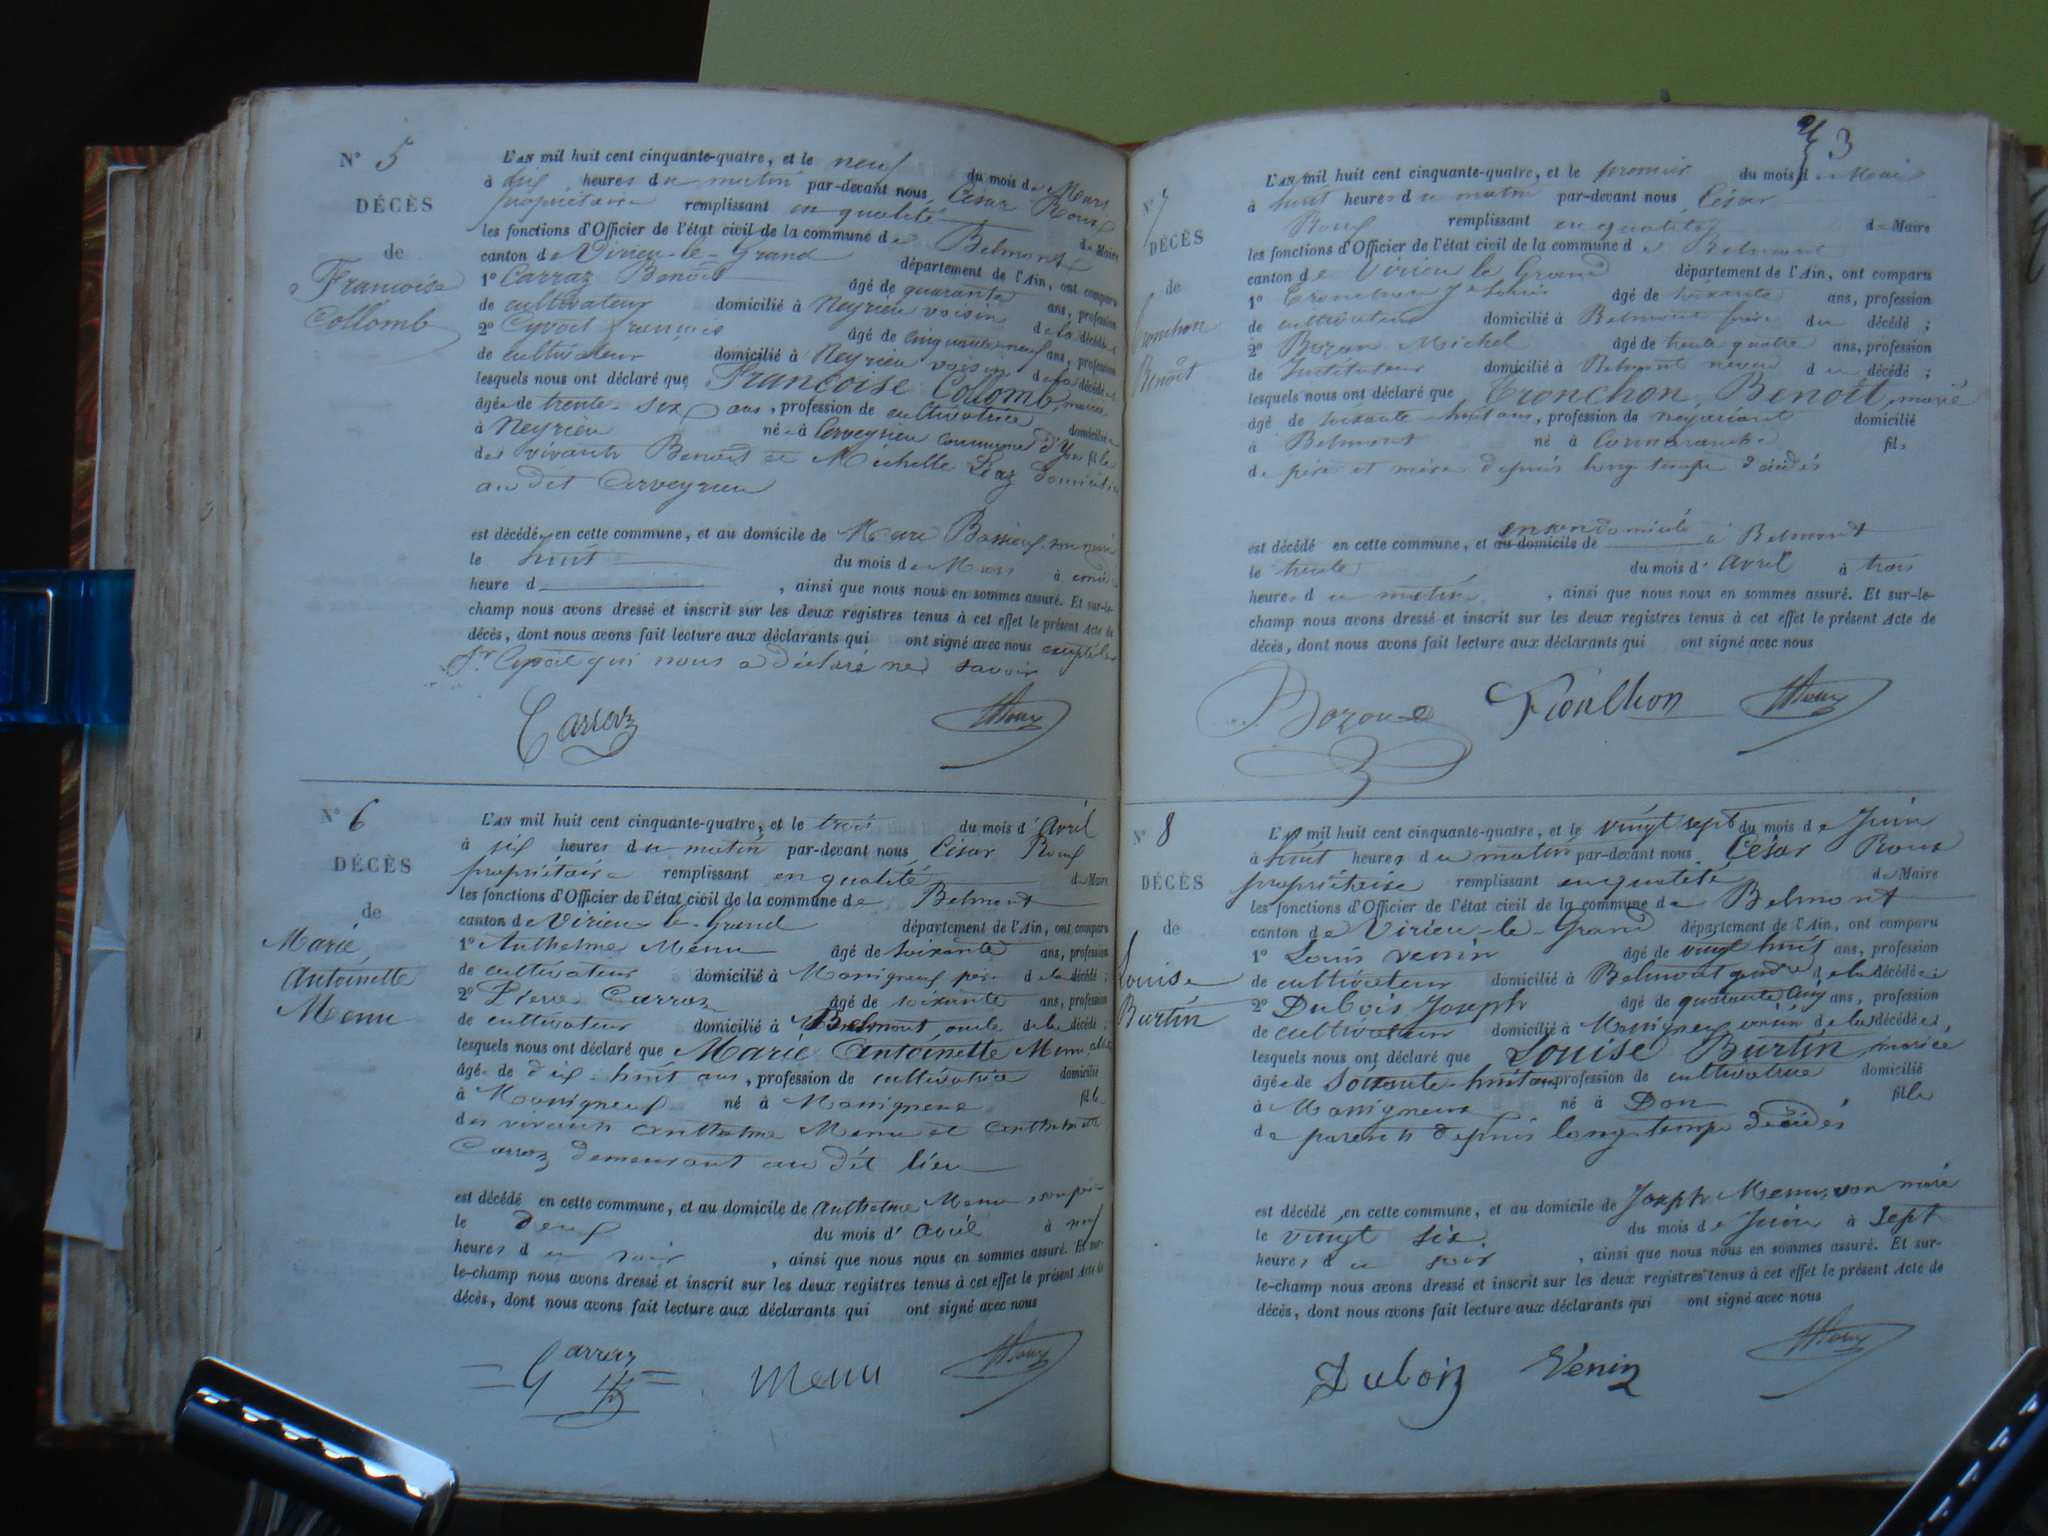 N° 5
DÉCÈS
de
Francoise
Collomb
L'AN mil huit cent cinquante-quatre, et le neuf du mois de Mars
à dix heures du matin par-devant nous César Roux
propriétaire remplissant en qualité de Maire
les fonctions d'Officier de l'état civil de la commune de Belmont
canton de Virieu-le-Grand département de l'Ain, ont comparu
1° Carraz Benoit âgé de quarante ans, profession
de cultivateur domicilié à Neyrieu voisin de la décédée
2° Cyvoct françois âgé de cinquante neuf ans, profession
de cultivateur domicilié à Neyrieu voisin de la décédée
lesquels nous ont déclaré que Françoise Collomb, mariée
âgée de trente six ans, profession de cultivatrice domiciliée
à Neyrieu né à Cerveyrieu commune d' fille
des vivants Benoit et Michelle domiciliés
au dit Cerveyrieu
est décédé en cette commune, et au domicile de Marc son mari
le huit du mois de Mars à
heure d , ainsi que nous nous en sommes assuré. Et sur-le-
champ nous avons dressé et inscrit sur les deux registres tenus à cet effet le présent Acte de
décès, dont nous avons fait lecture aux déclarants qui ont signé avec nous excepté le
Sr Cyvoct qui nous a déclaré ne savoir
Carraz Roux
N° 6
DÉCÈS
de
Marie
Antoinette
Menu
L'AN mil huit cent cinquante-quatre, et le trois du mois d'Avril
à six heures du matin par-devant nous César Roux
propriétaire remplissant en qualité de Maire
les fonctions d'Officier de l'état civil de la commune de Belmont
canton de Virieu-le-Grand département de l'Ain, ont comparu
1° Anthelme Menu âgé de soixante ans, profession
de cultivateur domicilié à Massigneux père de la décédé ;
2° Pierre Carraz âgé de soixante ans, profession
de cultivateur domicilié à Belmont, oncle de la décédé ;
lesquels nous ont déclaré que Marie Antoinette Menu
âgée de dix-huit ans, profession de cultivatrice domicilié
à Massigneux né à Massigneux fille
des vivants Anthelme Menu et Anthelmette
Carraz demeurant au dit lieu
est décédé en cette commune, et au domicile de Anthelme Menu, son père
le deux du mois d'avril à neuf
heures du soir , ainsi que nous nous en sommes assuré. Et sur-
le-champ nous avons dressé et inscrit sur les deux registres tenus à cet effet le présent Acte de
décès, dont nous avons fait lecture aux déclarants qui ont signé avec nous
Carraz Menu Roux
3
N° 7
DÉCÈS
de
Tronchon
Benoît
L'AN mil huit cent cinquante-quatre, et le premier du mois de Mai
à huit heures du matin par-devant nous César
Roux remplissant en qualité de Maire
les fonctions d'Officier de l'état civil de la commune de Belmont
canton de Virieu le Grand département de l'Ain, ont comparu
1° Tronchon Jn Louis âgé de soixante ans, profession
de cultivateur domicilié à Belmont frère du décédé ;
2° Bozon Michel âgé de trente quatre ans, profession
de Instituteur domicilié à Belmont neveu du décédé ;
lesquels nous ont déclaré que Tronchon Benoît, marié
âgé de soixante-huit ans, profession de négociant domicilié
à Belmont né à Cormaranche fils
de père et mère depuis long temps décédés
est décédé en cette commune, et au domicile de en son domicile à Belmont
le trente du mois d'avril à trois
heures du matin , ainsi que nous nous en sommes assuré. Et sur-le-
champ nous avons dressé et inscrit sur les deux registres tenus à cet effet le présent Acte de
décès, dont nous avons fait lecture aux déclarants qui ont signé avec nous
Bozon Tronchon Roux
N° 8
DÉCÈS
de
Louise
Burtin
L'AN mil huit cent cinquante-quatre, et le vingt sept du mois de Juin
à huit heures du matin par-devant nous César Roux
propriétaire remplissant en qualité de Maire
les fonctions d'Officier de l'état civil de la commune de Belmont
canton de Virieu-le-Grand département de l'Ain, ont comparu
1° Louis venin âgé de vingt huit ans, profession
de cultivateur domicilié à Belmont gendre de la décédée ;
2° Dubois Joseph âgé de quarante cinq ans, profession
de cultivateur domicilié à Massigneux voisin de la décédée,
lesquels nous ont déclaré que Louise Burtin, mariée
âgée de Soixante-huit ans profession de cultivatrice domicilié
à Massigneux né à Don fille
de parents depuis long temps décédés
est décédé en cette commune, et au domicile de Joseph Menu, son mari
le vingt six du mois de Juin à Sept
heures du soir , ainsi que nous nous en sommes assuré. Et sur-
le-champ nous avons dressé et inscrit sur les deux registres tenus à cet effet le présent Acte de
décès, dont nous avons fait lecture aux déclarants qui ont signé avec nous
Dubois Venin Roux